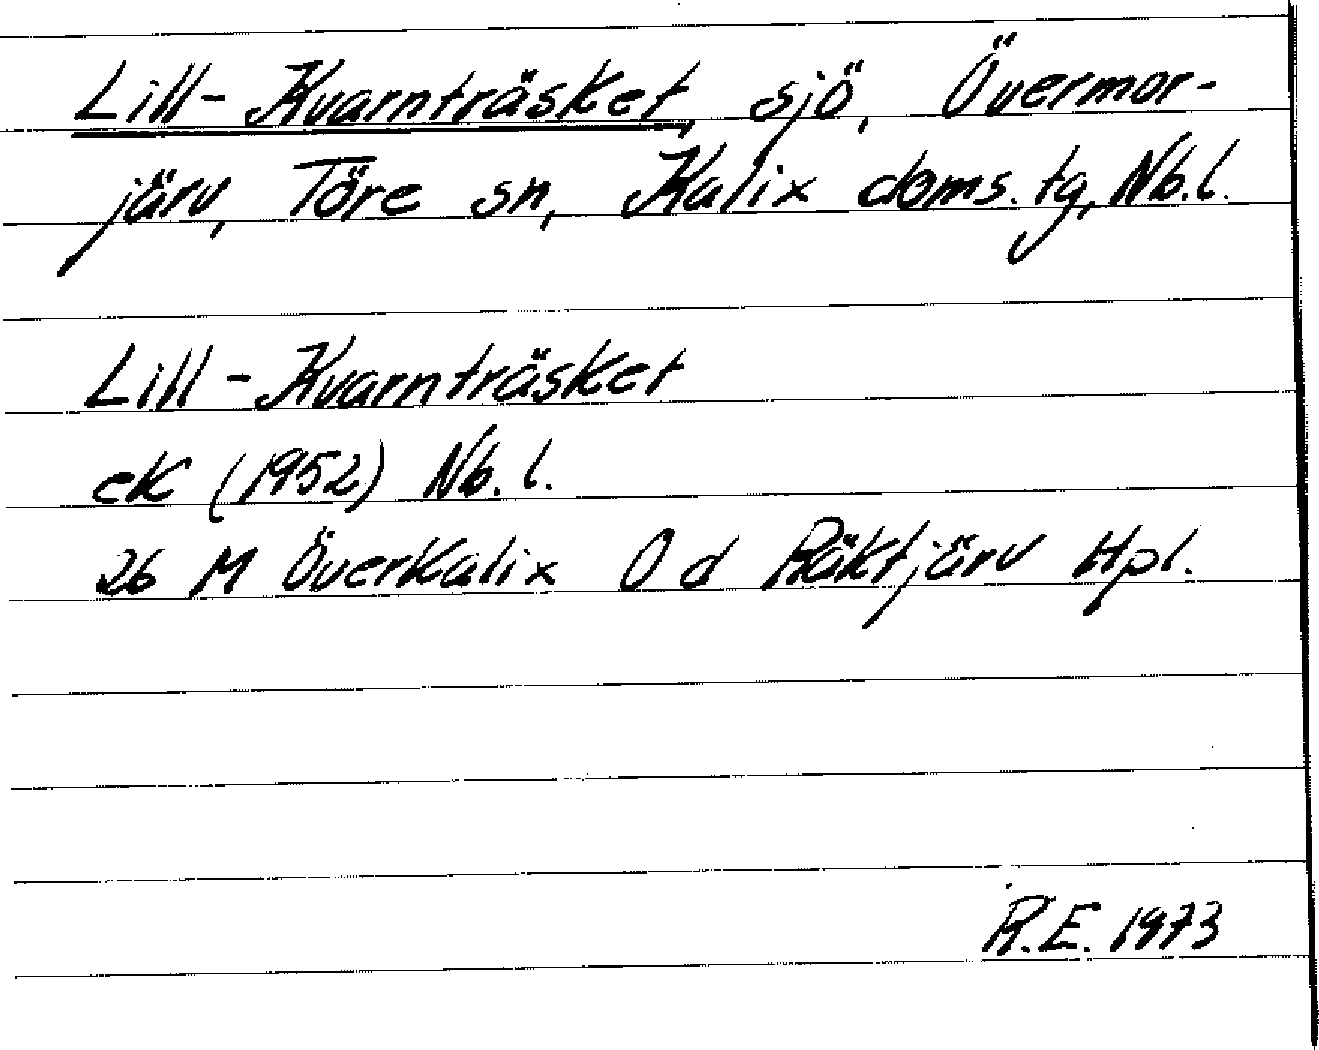 Lill-Kvarnträsket, sjö, Övermor-
järv, Töre sn, Kalix doms. tg, Nb.l.
Lill-Kvarnträsket
eK (1952) Nb. l.
26 M Överkalix 0 d Räktjärv Hpl.
R.E. 1973